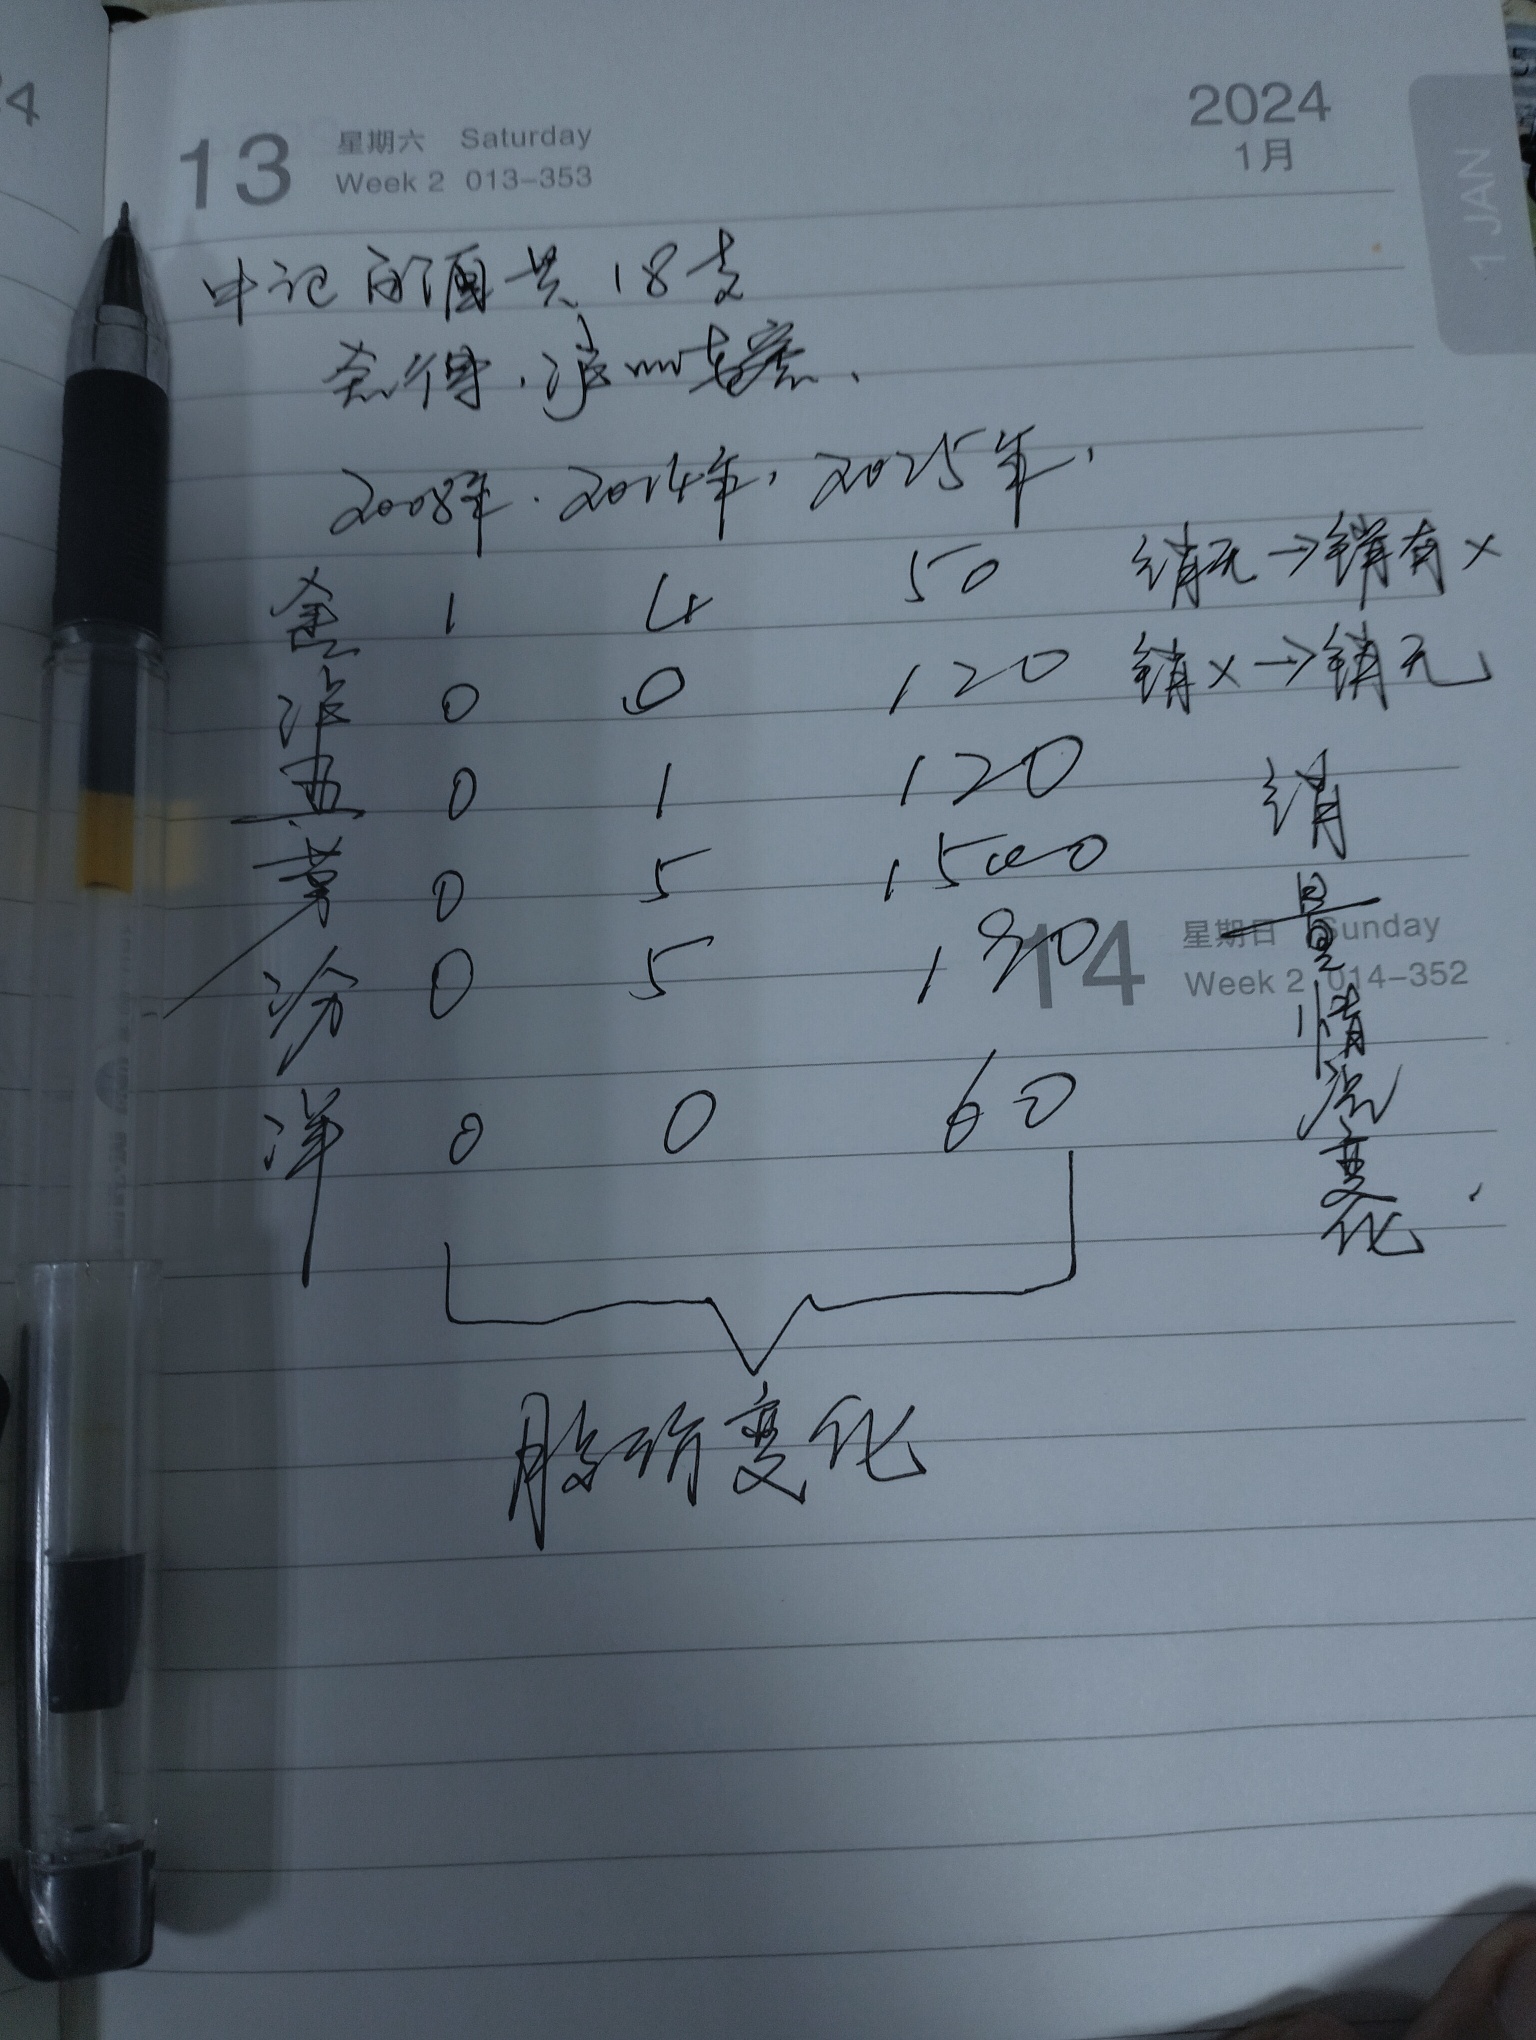 13 星期六 Saturday
Week 2 013-353
2024
1月
1 JAN
中记的酒共18支
2008年. 2014年, 2025年,
1 4 50 销无→销有×
0 0 120 销×→销无
五 0 1 120
0 5 1500
汾 0 5 190
洋 0 0 60
销量情况变化
14 星期日 Sunday
Week 2 014-352
股价变化